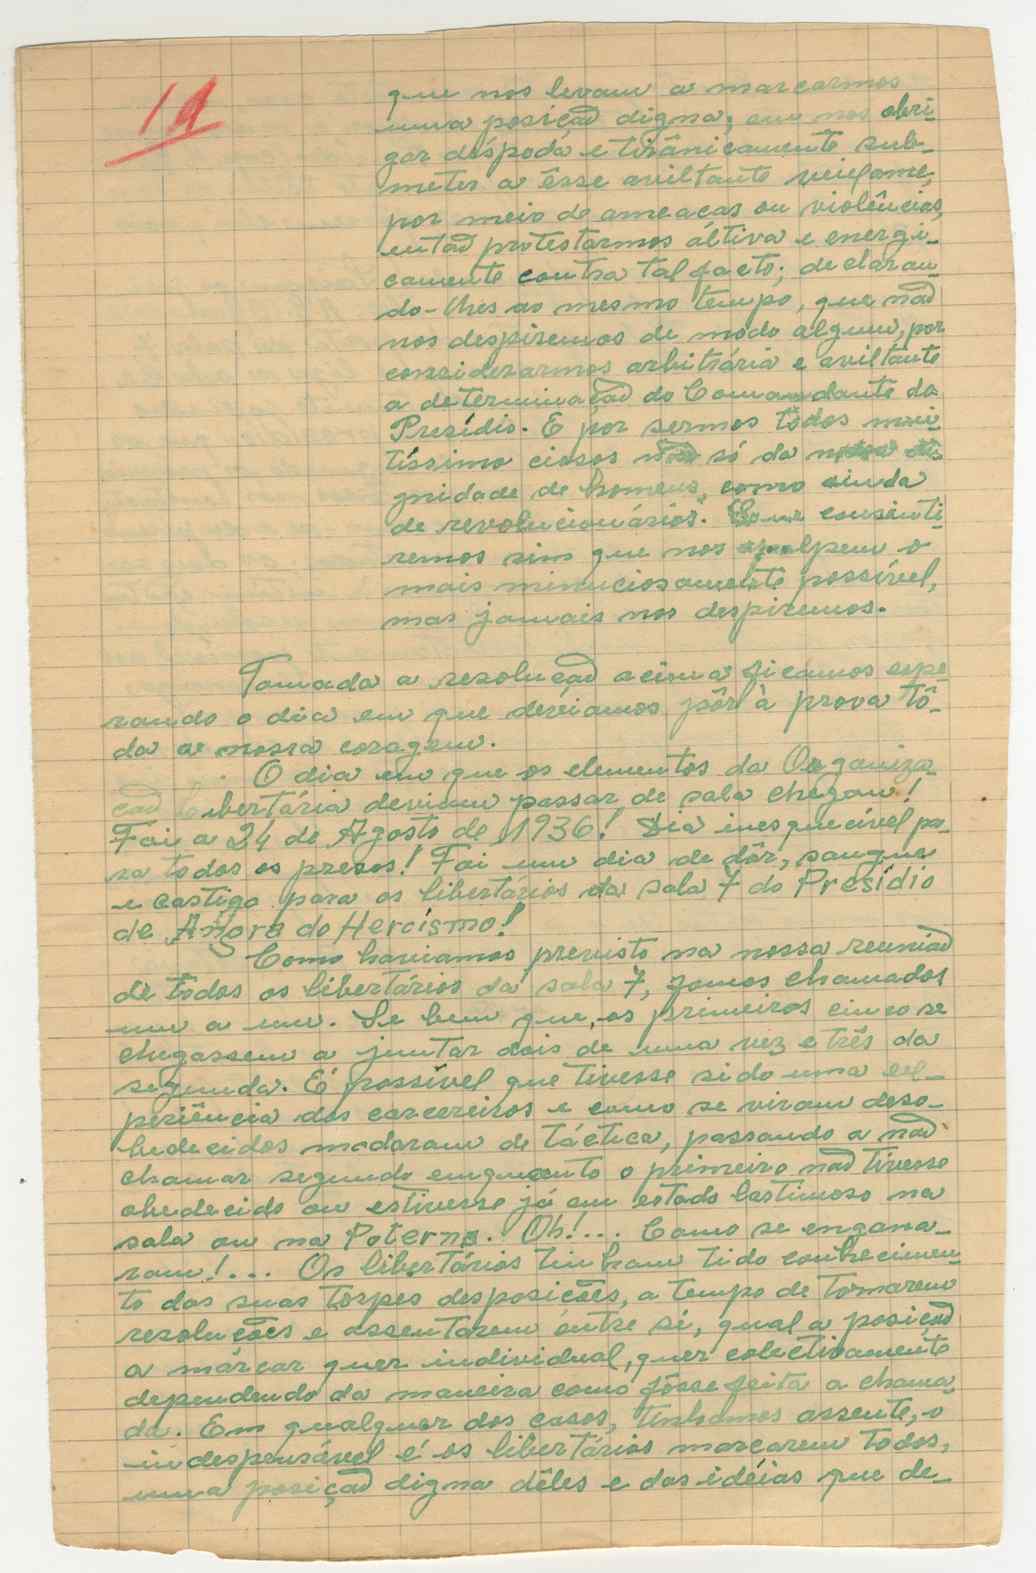 19
que nos levam a marcarmos
uma posição digna, em nos obri-
gar déspoda e tirânicamente sub-
meter a êsse aviltante vexame,
por meio de ameaças ou violências,
então protestarmos áltiva e energi-
camente contra tal facto; declaran-
do-lhes ao mesmo tempo, que não
nos despiremos de modo algum, por
considerarmos arbitrária e aviltante
a determinação do Comandante do
Presídio. E por sermos todos mui-
tíssimo ciosos não só da nossa di-
gnidade de homens, como ainda
de revolucionários. consenti-
remos sim que nos apalpem o
mais minuciosamente possível,
mas jamais nos despiremos.
Tomada a resolução acima ficamos espe
rando o dia em que deviamos pôr à prova tô-
da a nossa coragem.
O dia em que os elementos da Organiza-
ção Libertária deviam passar de sala chegou!
Foi a 24 de Agosto de 1936! Dia inesquecível pa-
ra todos os presos! Foi um dia de dôr, sangue
e castigo para os libertários da sala 7 do Presídio
de Angra do Heroísmo!
Como haviamos previsto na nossa reunião
de todos os libertários da sala 7, fomos chamados
um a um. Se bem que, os primeiros cinco se
chegassem a juntar dois de uma vez e três da
segunda. É possível que tivesse sido uma ex-
periência dos carcereiros e como se viram deso-
bedecidos modaram de táctica, passando a não
chamar segundo emquanto o primeiro não tivesse
obedecido ou estivesse já em estado lastimoso na
sala ou na Poterna. Oh!... Como se engana-
ram!... Os libertários tinham tido conhecimen-
to das suas torpes desposições, a tempo de tomarem
resoluções e assentarem entre si, qual a posição
a marcar quer individual, quer colectivamente
dependendo da maneira como fôsse feita a chama-
da. Em qualquer dos casos, tinhamos assente, o
indespensável é os libertários marcarem todos,
uma posição digna dêles e das idéias que de-